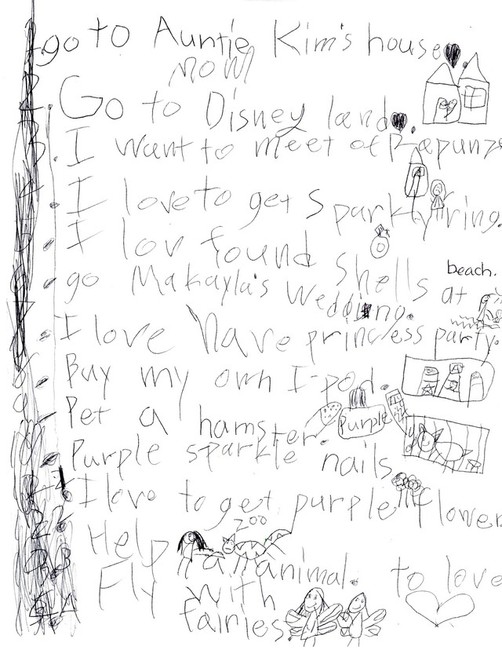 go to Auntie Kim's house
now
Go to Disney land.
I want to meet of Rapunz
I love to get sparkly ring.
I lov found shells at beach.
go Makayla's Wedding.
I love have princess party.
Buy my own I-pod.
Pet a hamster. Purple
Purple sparkle nails
I love to get purple flower
Help zoo animal. to love
Fly with
fairies